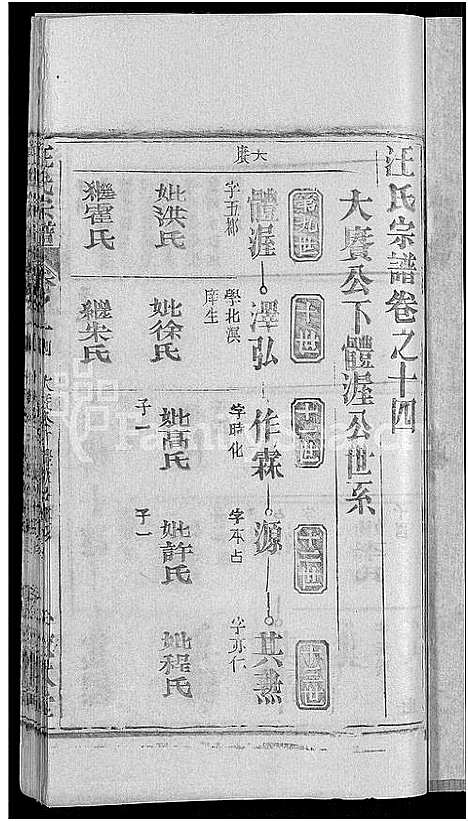 汪氏宗譜卷之十四
大賡公下體渥公世系
第九世
十世
十一世
十二世
十三世
大賡
體渥
澤弘
作霖
源
其烝
字玉都
學北溟
庠生
字時化
字本占
字亦仁
妣洪氏
妣徐氏
妣髙氏
子一
妣許氏
子一
妣程氏
繼霍氏
繼朱氏